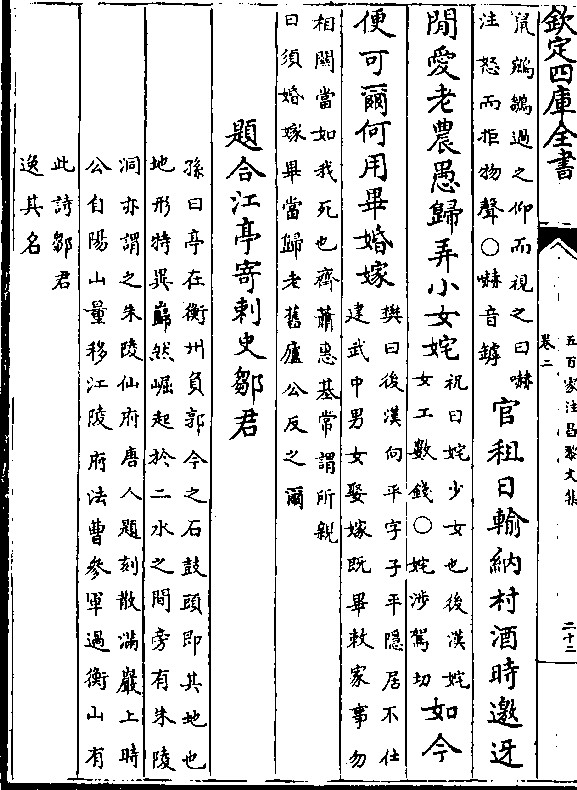 欽定四庫全書
五百家注昌黎文集
卷二
二十二
鼠鵷鶵過之仰而視之曰嚇
注怒而拒物聲○嚇音罅
官租日輸納村酒時邀迓
閒愛老農愚歸弄小女姹
祝曰姹少女也後漢姹
女工數錢○姹涉駕切
如今
便可爾何用畢婚嫁
樊曰後漢向平字子平隱居不仕
建武中男女娶嫁既畢敕家事勿
相關當如我死也齊蕭惠基常謂所親
曰須婚嫁畢當歸老舊廬公反之爾
題合江亭寄刺史鄒君
孫曰亭在衡州負郭今之石鼓頭即其地也
地形特異巋然崛起於二水之間旁有朱陵
洞亦謂之朱陵仙府唐人題刻散滿巖上時
公自陽山量移江陵府法曹參軍過衡山有
此詩鄒君
逸其名